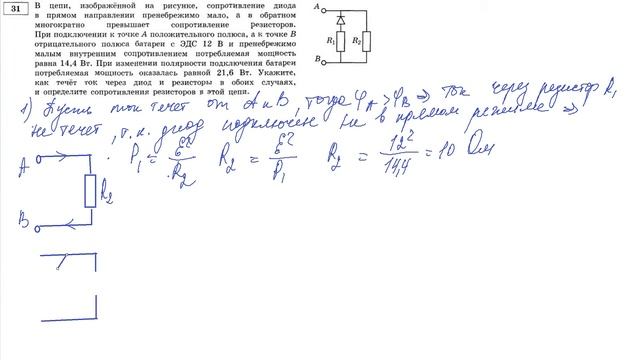 31
В цепи, изображённой на рисунке, сопротивление диода
в прямом направлении пренебрежимо мало, а в обратном
многократно превышает сопротивление резисторов.
При подключении к точке А положительного полюса, а к точке В
отрицательного полюса батареи с ЭДС 12 В и пренебрежимо
малым внутренним сопротивлением потребляемая мощность
равна 14,4 Вт. При изменении полярности подключения батареи
потребляемая мощность оказалась равной 21,6 Вт. Укажите,
как течёт ток через диод и резисторы в обоих случаях,
и определите сопротивления резисторов в этой цепи.
A
R1
R2
B
1) Пусть ток течет от A к B, тогда φA > φB ⇒ ток через резистор R1
не течет, т.к. диод подключен не в прямом режиме ⇒
P1 = ℰ²/R2 R2 = ℰ²/P1 R2 = 12²/14,4 = 10 Ом
A
R2
B